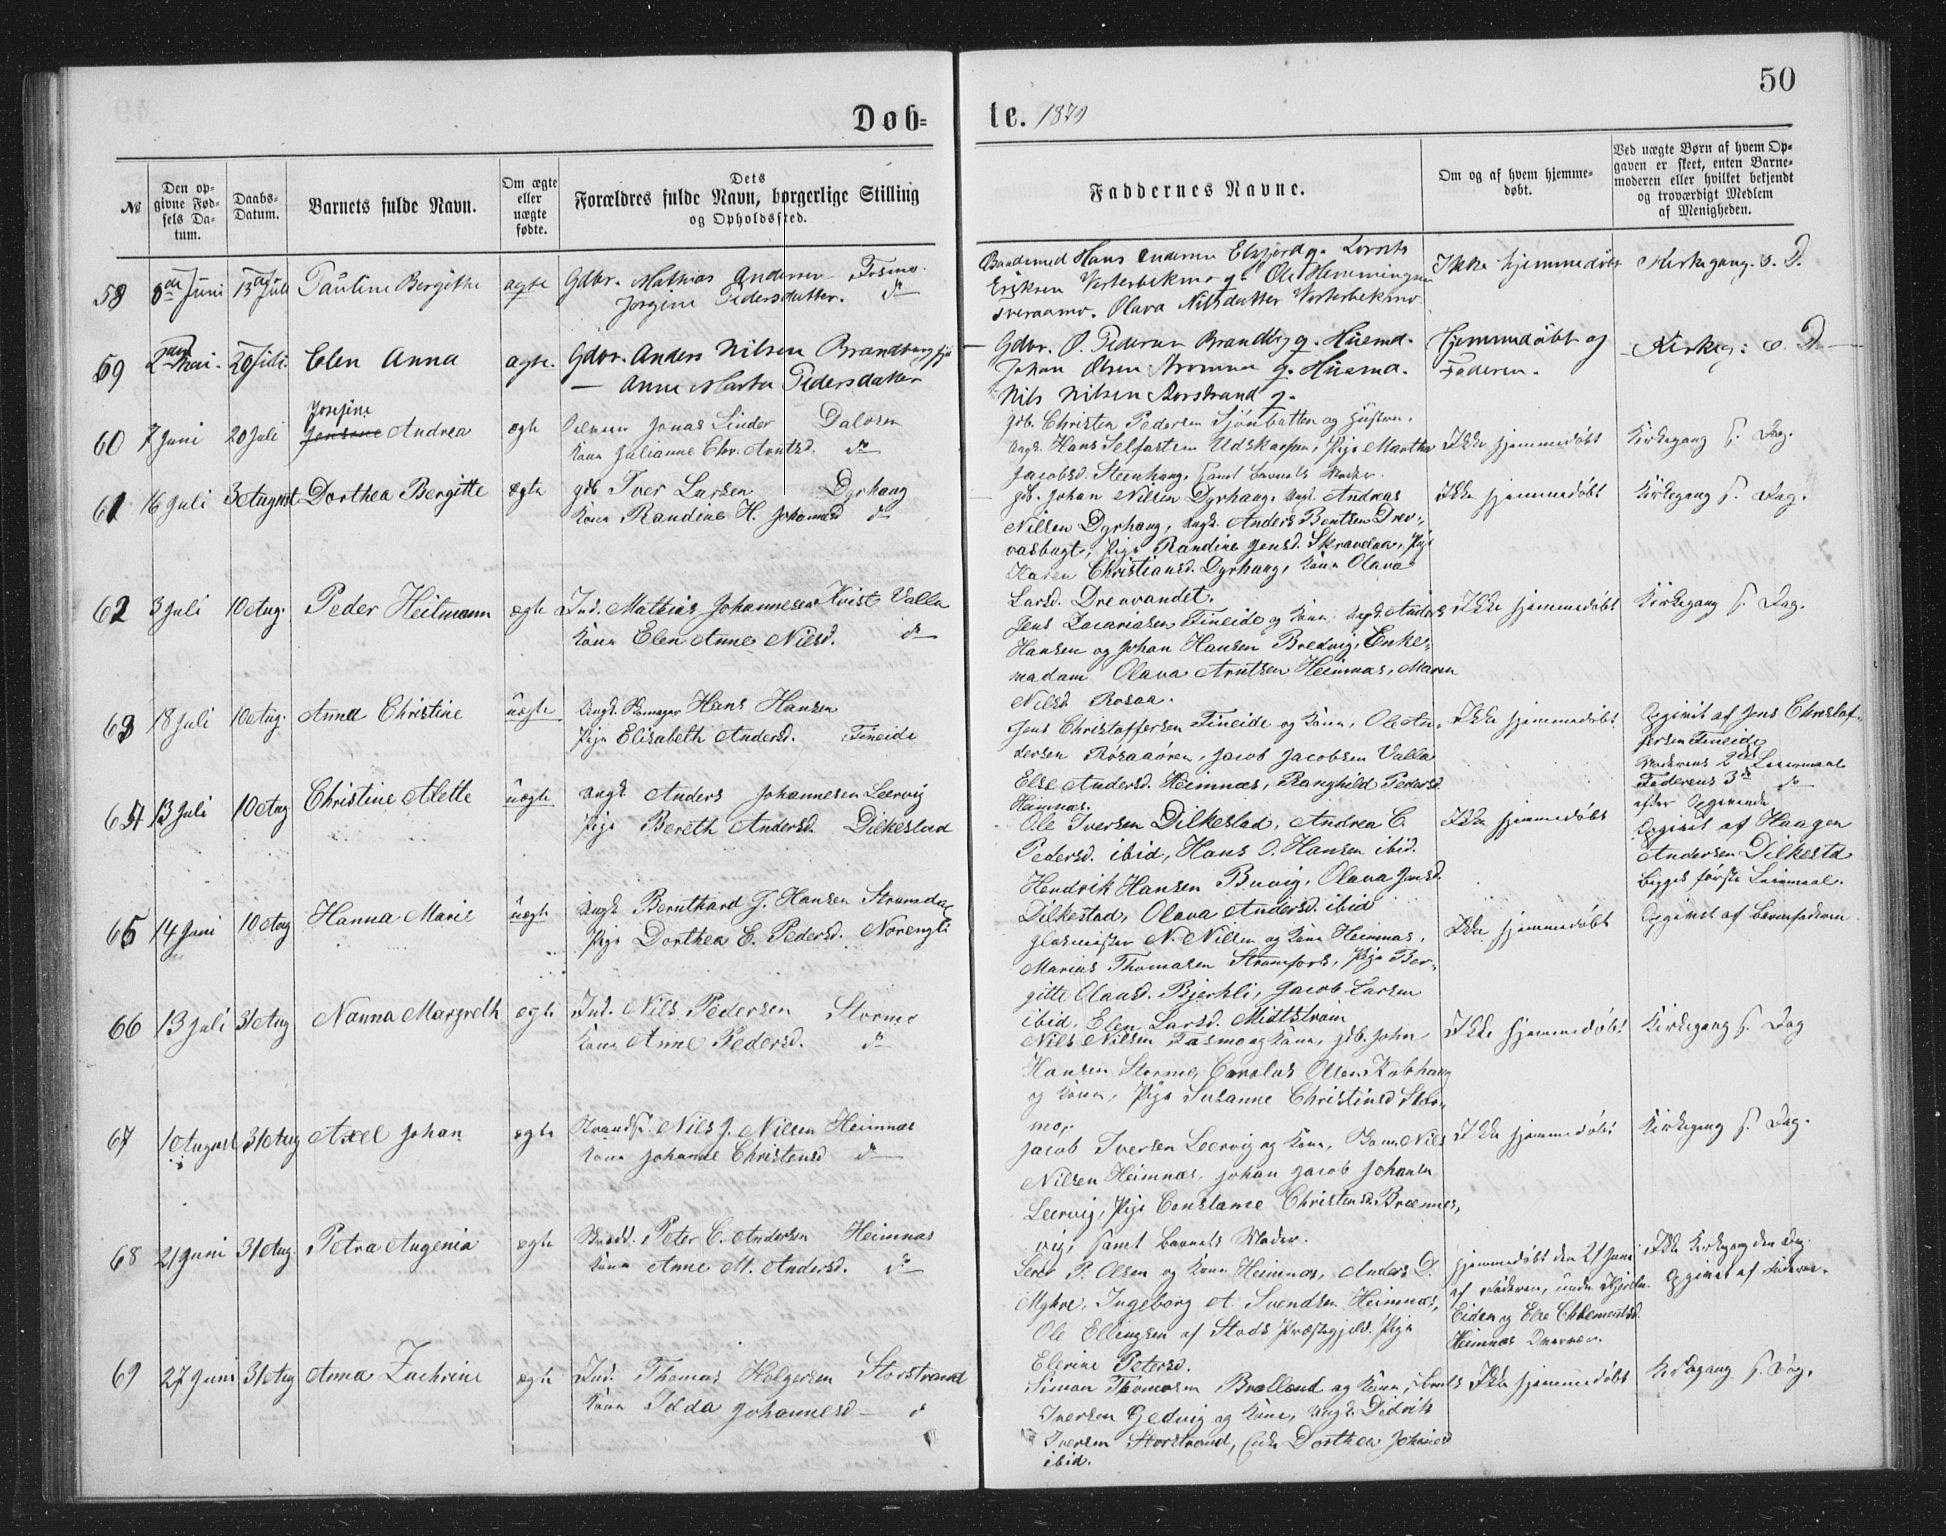 50
Døb-
te. 1879
№
Den op-
givne Fød-
sels Da-
tum.
Daabs-
Datum.
Barnets fulde Navn.
Om ægte
eller
uægte
fødte.
Dets
Forældres fulde Navn, borgerlige Stilling
og Opholdssted.
Faddernes Navne.
Om og af hvem hjemme-
døbt.
Ved uægte Børn af hvem Op-
gaven er skeet, enten Barne-
moderen eller hvilket bekjendt
og troværdigt Medlem
af Menigheden.
58 8de Juni 13de Juli Pauline Bergithe ægte Gdbr. Mathias Andersen Fosmo.
Jørgine Pedersdatter. do
Hans Andersen Elsfjord og
Eriksen Vesterbekmo og Ole Hemmingsen
Olava Nilsdatter Vesterbekmo
Ikke hjemmedøbt
Kirkegang s. D.
59 2den Mai. 20 Juli. Elen Anna ægte. Gdbr. Anders Nilsen
— Anne Marta Pedersdatter
Gdbr. P. Pedersen og Husmd.
Johan Olsen og Husmd.
Nils Nilsen Aorstrand og
Hjemmedøbt og
Faderen.
Kirkeg: s. D
60 7 Juni 20 Juli Josefine
Andrea ægte Jonas Linder Dalosen
Kone Julianne Chr. Arntsd. do
gdb. Christen Pedersen Sjonbotten og Hustru,
Ungk. Hans Selfortsen Udskarpen, Pige Martha
Jacobsd. Steenhaug, samt Barnets Moder.
Ikke hjemmedøbt
Kirkegang s. Dag.
61 16 Juli 3 August Dorthea Bergitte ægte gdb Iver Larsen Dyrhaug
Kone Randine H. Johannesd do
gdb. Johan Nilsen Dyrhaug, Ungk. Andreas
Nilsen Dyrhaug, Ungk. Anders Bentsen Drev-
vasbugt, Pige Randine Jensd. Skravdal, Pige
Karen Christiansd. Dyrhaug, Kone Olava
Larsd. Drevvandet.
Ikke hjemmedøbt
Kirkegang s. Dag.
62 3 Juli 10 Aug. Peder Heitmann ægte Ind. Mathias Johannesen Kvist Valla
Kone Elen Anne Nilsd. do
Jens Zacariasen Fineide og Kone, Ungk. Anders
Hansen og Johan Hansen Bredvig, Enke-
madam Olava Arntsen Heimnæs, Maren
Nilsd Rosaa.
Ikke hjemmedøbt
Kirkegang s. Dag.
63 18 Juli 10 Aug. Anna Christine uægte Ungk. Skomager Hans Hansen
Pige Elisabeth Andersd. Fineide
Jens Christoffersen Fineide og Kone, Ole An-
dersen Røsaaøren, Jacob Jacobsen Valla
Else Andersd. Heimnæs, Ranghild Pedersd
Hemnæs.
Ikke hjemmedøbt
Opgivet af Jens Christof-
fersen Fineide
Moderens 2det Leiermaal
Faderens 3de do
efter Opgivende
64 13 Juli 10 Aug Christine Alette uægte Ungk Anders Johannesen Leervig
Pige Bereth Andersd. Dilkestad
Ole Iversen Dilkestad, Andrea C
Pedersd. ibid, Hans O. Hansen ibid.
Hendrik Hansen Buvig, Olava Jensd.
Dilkestad, Olava Andersd. ibid
Ikke hjemmedøbt
Opgivet af Haagen
Andersen Dilkesta
begges første Leiermaal.
65 14 Juni 10 Aug Hanna Marie uægte Ungk Bernthard J. Hansen
Pige Dorthea E. Pedersd.
Glasmester N. Nilsen og Kone Heimnæs,
Marius Thomasen Strømfors, Pige Ber-
gitte Olausd. Bjerkli, Jacob Larsen
ibid. Elen Larsd. Midtstrøm
Ikke hjemmedøbt
Opgivet af Barnefaderen
66 13 Juli 31 Aug Nanna Margreth ægte Ind. Nils Pedersen Stormo
Kone Anne Pedersd. do
Nils Nilsen Fosmo og Kone, gdb. John
Hansen Stormo, Carolus Olsen Kobhaug
og Kone, Pige Susanne Christinsd Stor-
mo,
Ikke hjemmedøbt
Kirkegang s. Dag
67 1 August 31 Aug Axel Johan ægte Strands. Nils J. Nilsen Heimnæs
Kone Johanne Christensd do
Jacob Iversen Leervig og Kone, Nils
Nilsen Heimnæs, Johan Jacob Johansen
Leervig, Pige Constance Christensd. Bræmnes-
vig, samt Barnets Moder.
Ikke hjemmedøbt
Kirkegang s. Dag.
68 21 Juni 31 Aug. Petra Augenia ægte Peter C. Andersen Heimnæs
Kone Anne M. Andersd. do
P. Olsen og Kone Heimnæs, Anders D.
Myhre, Ingeborg A. Svendsen Heimnæs,
Ole Ellingsen af Stods Præstegjeld. Pige
Elerine Petersd.
hjemmedøbt den 21 Juni
af Faderen,
Eiden og Else Chlementsd.
Heimnæs
Ikke Kirkegang den Dag.
Opgivet af Faderen.
69 27 Juni 31 Aug Anna Zachrine ægte Ind. Thomas Holgersen Storstrand
Kone Idda Johannesd — do
Simon Thomasen Bralland og Kone,
Iversen Gedvig og Kone, Ungk. Didrik
Iversen Storstrand, Enke Dorthea Johansd
ibid.
Ikke hjemmedøbt
Kirkegang s. Dag.